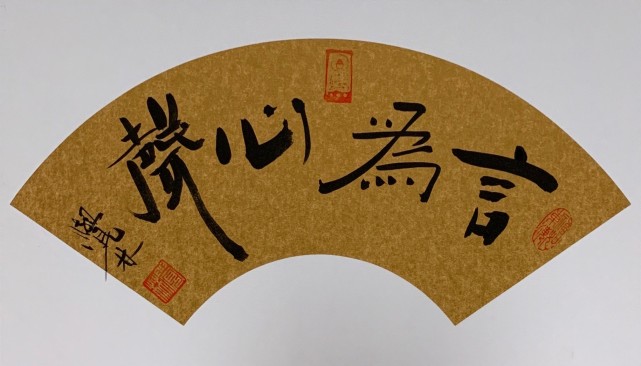 言為心聲